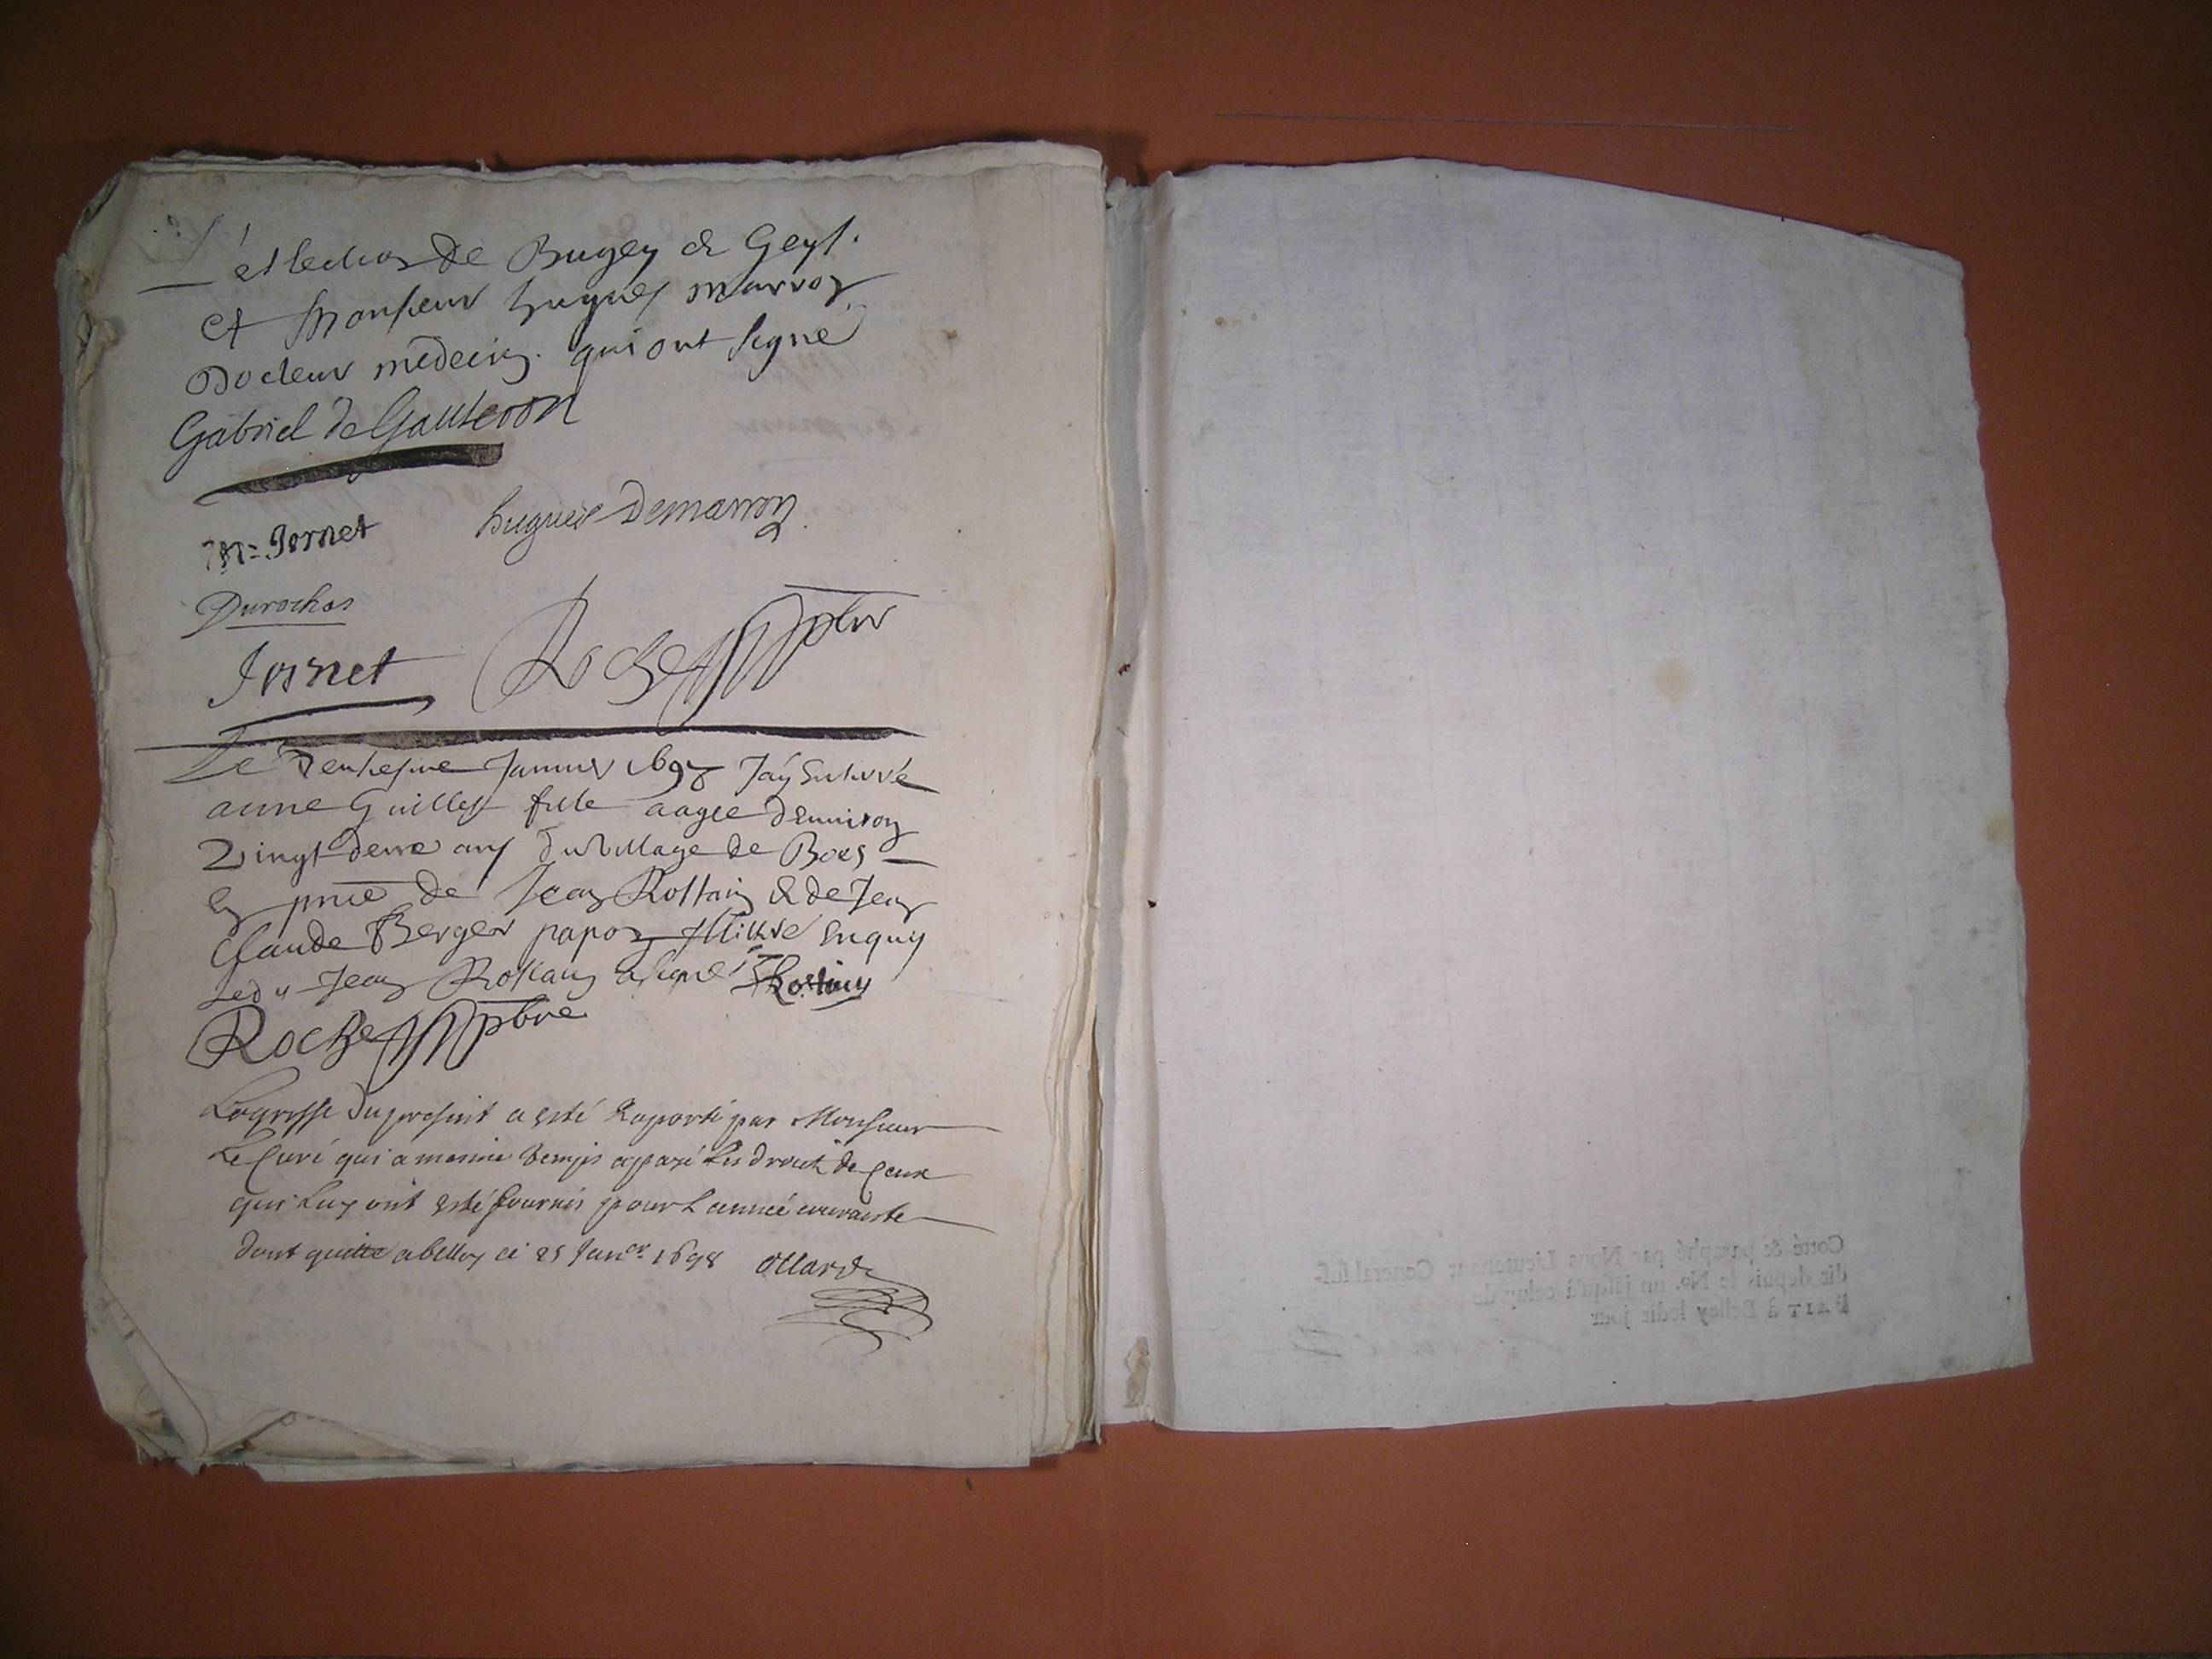 L'eslection de Bugey & Gex.
Et Monsieur hugues marron
Docteur médecin. qui ont signé
Gabriel de Gauteron
M= Jornet hugues Demarron
Durochas
Jornet Roche ptre
Le janvier 1698 Jay Enterré
anne Guillet fille aagee d'environ
vingt deux ans du village de Boes
En pnce de Jean Rostaing & de Jean
Claude Berger papon Enquis
led Jean Rostaing a signé Rostaing
Roche pbre
La grosse du present a esté Raporté par Monsieur
Le Curé qui a mesme temps a payé les droits de ceux
qui Luy ont esté fournis pour l'année courante
dont quitte a belley ce 25 Janer 1698 Ollard
Cotté & paraphé par Nous Lieutenant General sus-
dit depuis le No. un jusqu'à celuy de
FAIT à Belley ledit jour